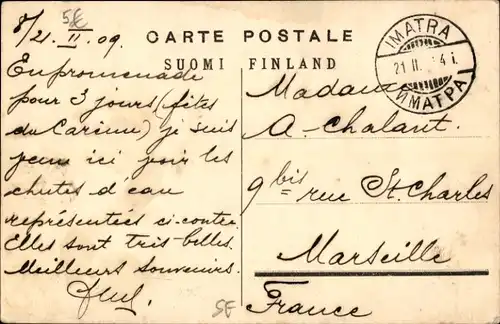 5£
8/21. II. 09.
CARTE POSTALE
SUOMI FINLAND
IMATRA
21 II. 4 i.
ИМАТРА
En promenade
pour 3 jours (fêtes
du Carême) je suis
venu ici voir les
chutes d'eau
représentées ci-contre.
Elles sont très belles.
Meilleurs souvenirs.
Madame
A. Chalant.
9 bis rue St. Charles
Marseille
France
5£